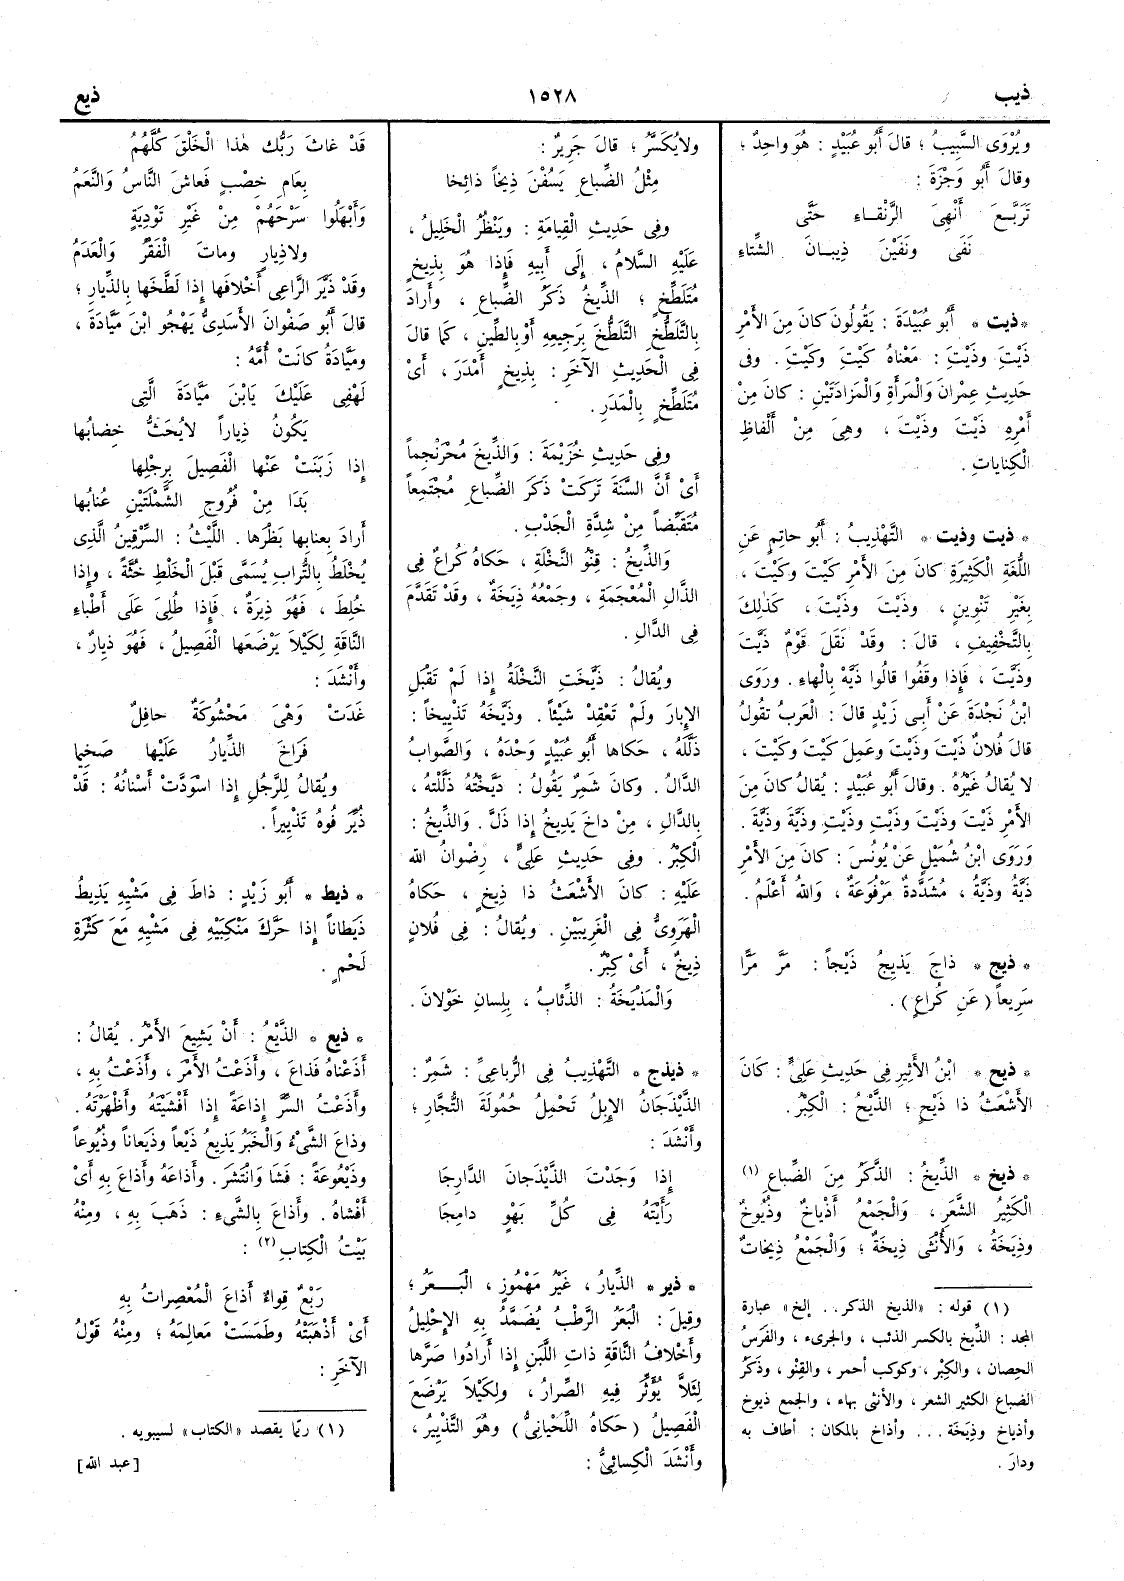 ذيب
١٥٢٨
ذيع
وَيُرْوَى السَّبِيبُ ؛ قالَ أَبُو عُبَيْدٍ : هُوَ واحِدٌ ؛
وقالَ أَبُو وَجْزَةَ :
تَرَبَّـعَ أَنْهِىَ الرَّنْقـاءِ حَتَّى
نَفَى ونَفَيْنَ ذِيبـانَ الشِّتاءِ
* ذيت * أَبُو عُبَيْدَةَ : يَقُولُونَ كانَ مِنَ الأَمْرِ
ذَيْتَ وذَيْتَ : مَعْناهُ كَيْتَ وكَيْتَ . وفى
حَدِيثِ عِمْرانَ وَالْمَرْأَةِ وَالْمَزادَتَيْنِ : كانَ مِنْ
أَمْرِهِ ذَيْتَ وذَيْتَ ، وهِىَ مِنْ أَلْفاظِ
الْكِناياتِ .
* ذيت وذيت * التَّهْذِيبُ : أَبُو حاتِمٍ عَنِ
اللُّغَةِ الْكَثِيرَةِ كانَ مِنَ الأَمْرِ كَيْتَ وكَيْتَ ،
بِغَيْرِ تَنْوِينٍ ، وذَيْتَ وذَيْتَ ، كَذٰلِكَ
بِالتَّخْفِيفِ ، قالَ : وقَدْ نَقَلَ قَوْمٌ ذَيَّتَ
وذَيَّتَ ، فَإِذا وقَفُوا قالُوا ذَيَّهْ بِالْهاءِ . ورَوَى
ابْنُ نَجْدَةَ عَنْ أَبِى زَيْدٍ قالَ : الْعَرَبُ تَقُولُ
قالَ فُلانٌ ذَيْتَ وذَيْتَ وعَمِلَ كَيْتَ وكَيْتَ ،
لا يُقالُ غَيْرُهُ . وقالَ أَبُو عُبَيْدٍ : يُقالُ كانَ مِنَ
الأَمْرِ ذَيْتَ وذَيْتَ وذَيْتِ وذَيْتِ وذَيَّةَ وذَيَّةَ .
وَرَوَى ابْنُ شُمَيْلٍ عَنْ يُونُسَ : كانَ مِنَ الأَمْرِ
ذَيَّةُ وذَيَّةُ ، مُشَدَّدَةٌ مَرْفُوعَةٌ ، وَاللهُ أَعْلَمُ .
* ذيج * ذاجَ يَذِيجُ ذَيْجاً : مَرَّ مَرًّا
سَرِيعاً ( عَنِ كُراعٍ ) .
* ذيح * ابْنُ الأَثِيرِ فِى حَدِيثِ عَلِىٍّ : كَانَ
الأَشْعَثُ ذا ذَيْحٍ ؛ الذَّيْحُ : الْكِبْرُ .
* ذيخ * الذِّيخُ : الذَّكَرُ مِنَ الضِّباعِ (١)
الْكَثِيرُ الشَّعَرِ ، وَالْجَمْعُ أَذْياخٌ وذُيُوخٌ
وذِيَخَةٌ ، وَالأُنْثَى ذِيخَةٌ ؛ وَالْجَمْعُ ذِيخاتٌ
(١) قوله : «الذيخ الذكر . . إلخ» عبارة
المجد : الذِّيخ بالكسر الذئب ، والجرىء ، والفَرَسُ
الحصان ، والكِبْر ، وكوكب أحمر ، والقِنْو ، وذكَرُ
الضباع الكثير الشعر ، والأنثى بهاء ، والجمع ذيوخ
وأذياخ وذِيَخَة . . . وأذاخ بالمكان : أطاف به
ودارَ .
ولايُكَسَّرُ ؛ قالَ جَرِيرٌ :
مِثْلُ الضِّباعِ يَسُفْنَ ذِيخاً ذائِخا
وفِى حَدِيثِ الْقِيامَةِ : ويَنْظُرُ الْخَلِيلُ ،
عَلَيْهِ السَّلامُ ، إِلَى أَبِيهِ فَإِذا هُوَ بِذِيخٍ
مُتَلَطِّخٍ ؛ الذِّيخُ ذَكَرُ الضِّباعِ ، وأَرادَ
بِالتَّلَطُّخِ التَّلَطُّخَ بِرَجِيعِهِ أَوْبِالطِّينِ ، كَما قالَ
فِى الْحَدِيثِ الآخَرِ : بِذِيخٍ أَمْدَرَ ، أَىْ
مُتَلَطِّخٍ بِالْمَدَرِ .
وفِى حَدِيثِ خُزَيْمَةَ : وَالذِّيخَ مُحْرَنْجِماً
أَىْ أَنَّ السَّنَةَ تَرَكَتْ ذَكَرَ الضِّباعِ مُجْتَمِعاً
مُتَقَبِّضاً مِنْ شِدَّةِ الْجَدْبِ .
وَالذِّيخُ : قِنْوُ النَّخْلَةِ ، حَكاهُ كُراعٌ فِى
الذَّالِ الْمُعْجَمَةِ ، وجَمْعُهُ ذِيَخَةٌ ، وقَدْ تَقَدَّمَ
فِى الدَّالِ .
ويُقالُ : ذَيَّخَتِ النَّخْلَةُ إِذا لَمْ تَقْبَلِ
الإِبارَ ولَمْ تَعْقِدْ شَيْئاً . وذَيَّخَهُ تَذْيِيخاً :
ذَلَّلَهُ ، حَكاها أَبُو عُبَيْدٍ وَحْدَهُ ، وَالصَّوابُ
الدَّالُ . وكانَ شَمِرٌ يَقُولُ : دَيَّخْتُهُ ذَلَّلْتُهُ ،
بِالدَّالِ ، مِنْ داخَ يَدِيخُ إِذا ذَلَّ . وَالذِّيخُ :
الْكِبْرُ . وفِى حَدِيثِ عَلِىٍّ ، رِضْوانُ اللهِ
عَلَيْهِ : كانَ الأَشْعَثُ ذا ذِيخٍ ، حَكاهُ
الْهَرَوِىُّ فِى الْغَرِيبَيْنِ . ويُقالُ : فِى فُلانٍ
ذِيخٌ ، أَىْ كِبْرٌ .
وَالْمَذْيَخَةُ : الذِّئابُ ، بِلِسانِ خَوْلانَ .
* ذيذج * التَّهْذِيبُ فِى الرُّباعِىِّ : شَمِرٌ :
الذَّيْذَجانُ الإِبِلُ تَحْمِلُ حُمُولَةَ التُّجَّارِ ؛
وأَنْشَدَ :
إِذا وَجَدْتَ الذَّيْذَجانَ الدَّارِجا
رَأَيْتَهُ فِى كُلِّ بَهْوٍ دامِجَا
* ذير * الذِّيارُ ، غَيْرُ مَهْمُوزٍ ، الْبَـعَرُ ؛
وقِيلَ : الْبَعَرُ الرَّطْبُ يُضَمَّدُ بِهِ الإِحْلِيلُ
وأَخْلافُ النَّاقَةِ ذاتِ اللَّبَنِ إِذا أَرادُوا صَرَّها
لِئَلاَّ يُؤَثِّرَ فِيهِ الصِّرارُ ، ولِكَيْلاَ يَرْضَعَ
الْفَصِيلُ ( حَكاهُ اللِّحْيانِىُّ ) وهُوَ التَّذْيِيرُ ،
وأَنْشَدَ الْكِسائِىُّ :
قَدْ غاثَ رَبُّكَ هٰذا الْخَلْقَ كُلَّهُمُ
بِعَامِ خِصْبٍ فَعاشَ النَّاسُ وَالنَّعَمُ
وَأَبْهَلُوا سَرْحَهُمْ مِنْ غَيْرِ تَوْدِيَةٍ
ولاذِيارٍ وماتَ الْفَقْرُ وَالْعَدَمُ
وقَدْ ذَيَّرَ الرَّاعِى أَخْلافَها إِذا لَطَّخَها بِالذِّيارِ ؛
قالَ أَبُو صَفْوانَ الأَسَدِىُّ يَهْجُو ابْنَ مَيَّادَةَ ،
ومَيَّادَةُ كانَتْ أُمَّهُ :
لَهْفِى عَلَيْكَ يَابْنَ مَيَّادَةَ الَّتِى
يَكُونُ ذِياراً لايُحَتُّ خِضابُها
إِذا زَبَنَتْ عَنْها الْفَصِيلَ بِرِجْلِها
بَدَا مِنْ فُرُوجِ الشَّمْلَتَيْنِ عُنابُها
أَرادَ بِعنابِها بَظْرَها . اللَّيْثُ : السِّرْقِينُ الَّذِى
يُخْلَطُ بِالتُّرابِ يُسَمَّى قَبْلَ الْخَلْطِ خُثَّةً ، وإِذا
خُلِطَ ، فَهُوَ ذِيرَةٌ ، فَإِذا طُلِىَ عَلَى أَطْباءِ
النَّاقَةِ لِكَيْلاَ يَرْضَعَها الْفَصِيلُ ، فَهُوَ ذِيارٌ ،
وأَنْشَدَ :
غَدَتْ وَهْىَ مَحْشُوكَةٌ حافِلٌ
فَرَاخَ الذِّيارُ عَلَيْها صَخِيما
ويُقالُ لِلرَّجُلِ إِذا اسْوَدَّتْ أَسْنانُهُ : قَدْ
ذُيِّرَ فُوهُ تَذْيِيراً .
* ذيط * أَبُو زَيْدٍ : ذاطَ فِى مَشْيِهِ يَذِيطُ
ذَيَطاناً إِذا حَرَّكَ مَنْكِبَيْهِ فِى مَشْيِهِ مَعَ كَثْرَةِ
لَحْمٍ .
* ذيع * الذَّيْعُ : أَنْ يَشِيعَ الأَمْرُ . يُقالُ :
أَذَعْناهُ فَذاعَ ، وأَذَعْتُ الأَمْرَ ، وأَذَعْتُ بِهِ ،
وأَذَعْتُ السِّرَّ إِذاعَةً إِذا أَفْشَيْتَهُ وأَظْهَرْتَهُ .
وذاعَ الشَّىْءُ وَالْخَبَرُ يَذِيعُ ذَيْعاً وذَيَعاناً وذُيُوعاً
وذَيْعُوعَةً : فَشَا وَانْتَشَرَ . وأَذاعَهُ وأَذاعَ بِهِ أَىْ
أَفْشاهُ . وأَذاعَ بِالشَّىْءِ : ذَهَبَ بِهِ ، ومِنْهُ
بَيْتُ الْكِتابِ (٢) :
رَبْعٌ قِواءٌ أَذاعَ الْمُعْصِراتُ بِهِ
أَىْ أَذْهَبَتْهُ وطَمَسَتْ مَعالِمَهُ ؛ ومِنْهُ قَوْلُ
الآخَرِ :
(١) ربّما يقصد «الكتاب» لسيبويه .
[عبد الله]